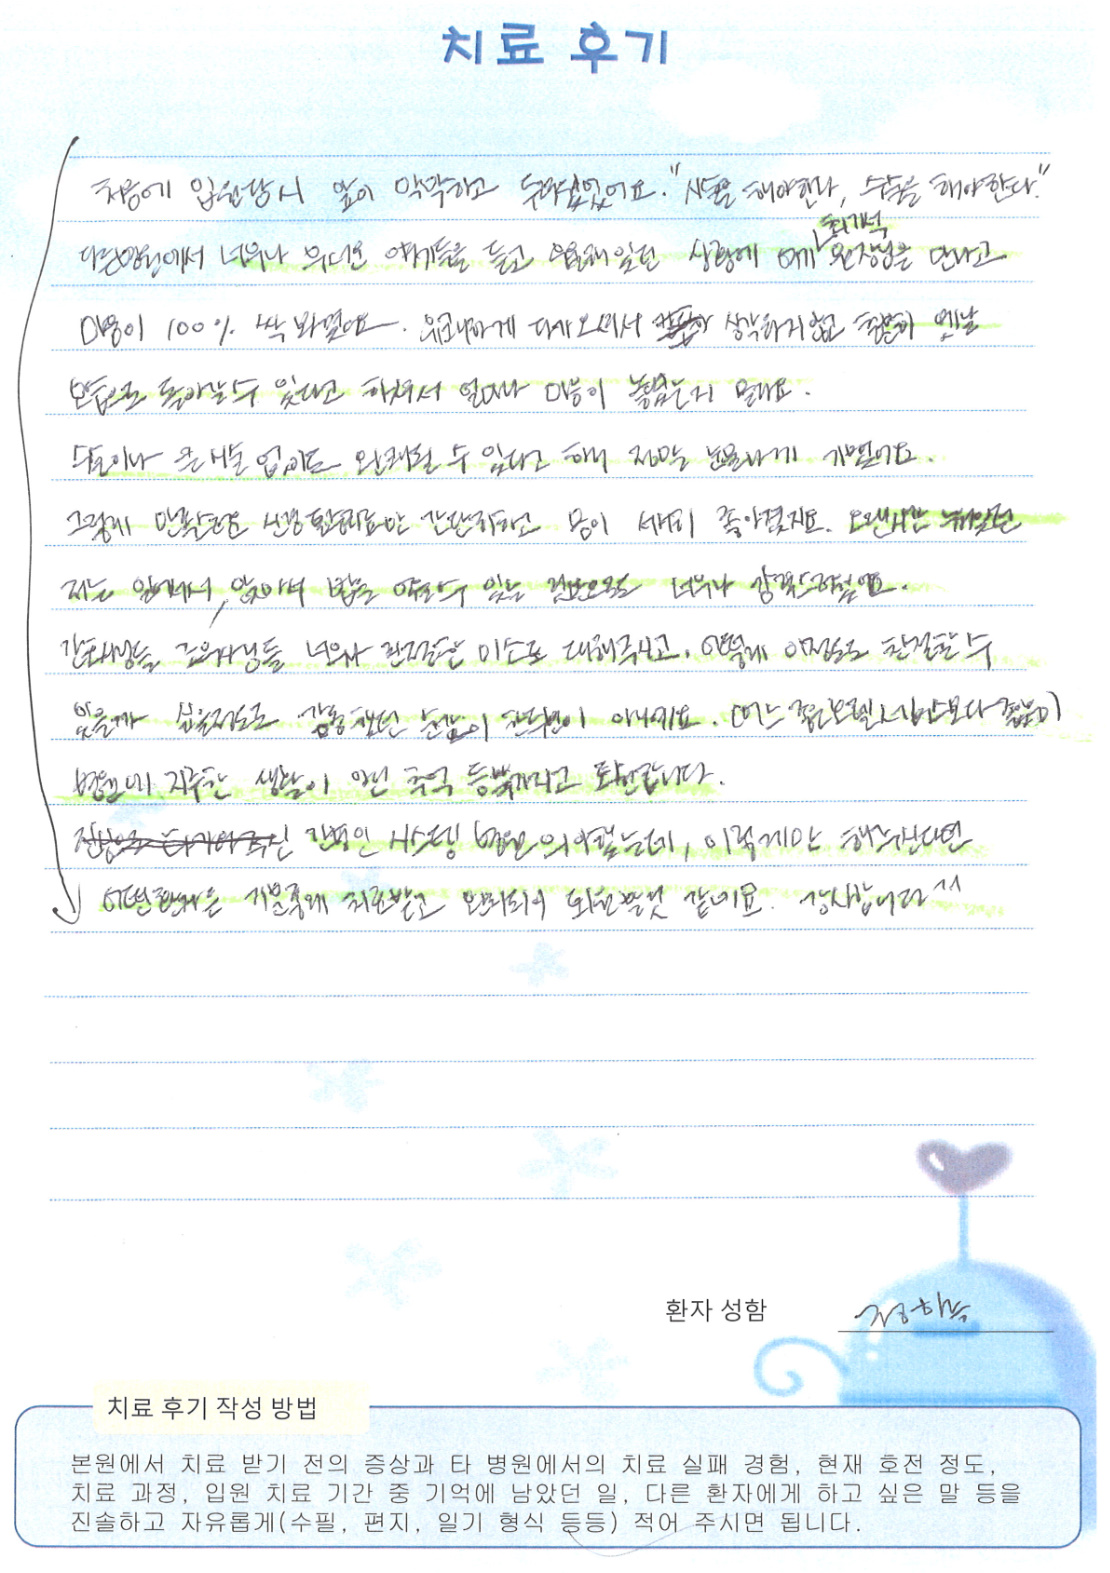 치료 후기
처음에 입원당시 앞이 막막하고 두려웠었어요. "시술을 해야한다, 수술을 해야한다."
최기석
다른병원에서 너무나 무서운 얘기들을 듣고 우울해 있던 상황에 원장님을 만나고
마음이 100% 싹 바꼈어요. 유쾌하게 다가오셔서 생각하지않고 충분히 옛날
모습으로 돌아갈수 있다고 하셔서 얼마나 마음이 놓였는지 몰라요.
수술이나 큰 시술 없이도 완쾌될 수 있다고 해서 정말 눈물나게 기뻤어요.
그렇게 간단히하고 몸이 서서히 좋아졌지요. 오랜시간 누워있던
저는 앉아서 밥을 먹을수 있는 것만으로도 너무나 감격스러웠어요.
간호사님들, 간호사님들 너무나 친절한 미소로 대해주시고, 어떻게 이정도로 친절할 수
있을까 싶을정도로 감동했던 순간이 한두번이 아니에요. (어느 좋은호텔
병원이 지루한 생활이 아닌 추억 표현합니다.
시스템 병원 이렇게만 해주신다면
어떤환자들은 기분좋게 치료받고 완쾌되어 퇴원할것 같네요. 감사합니다^^
환자 성함
치료 후기 작성 방법
본원에서 치료 받기 전의 증상과 타 병원에서의 치료 실패 경험, 현재 호전 정도,
치료 과정, 입원 치료 기간 중 기억에 남았던 일, 다른 환자에게 하고 싶은 말 등을
진솔하고 자유롭게(수필, 편지, 일기 형식 등등) 적어 주시면 됩니다.